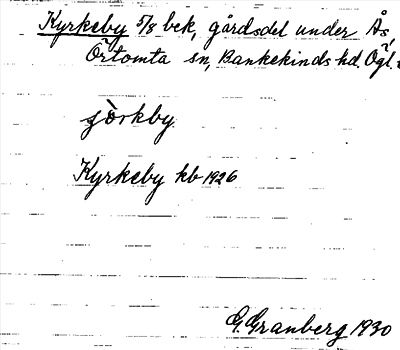 Kyrkeby 5/8 bek, gårdsdel under Ås,
Örtomta sn, Bankekinds hd. Ögl.
kb 1926
Kyrkeby
G. Granberg 1930